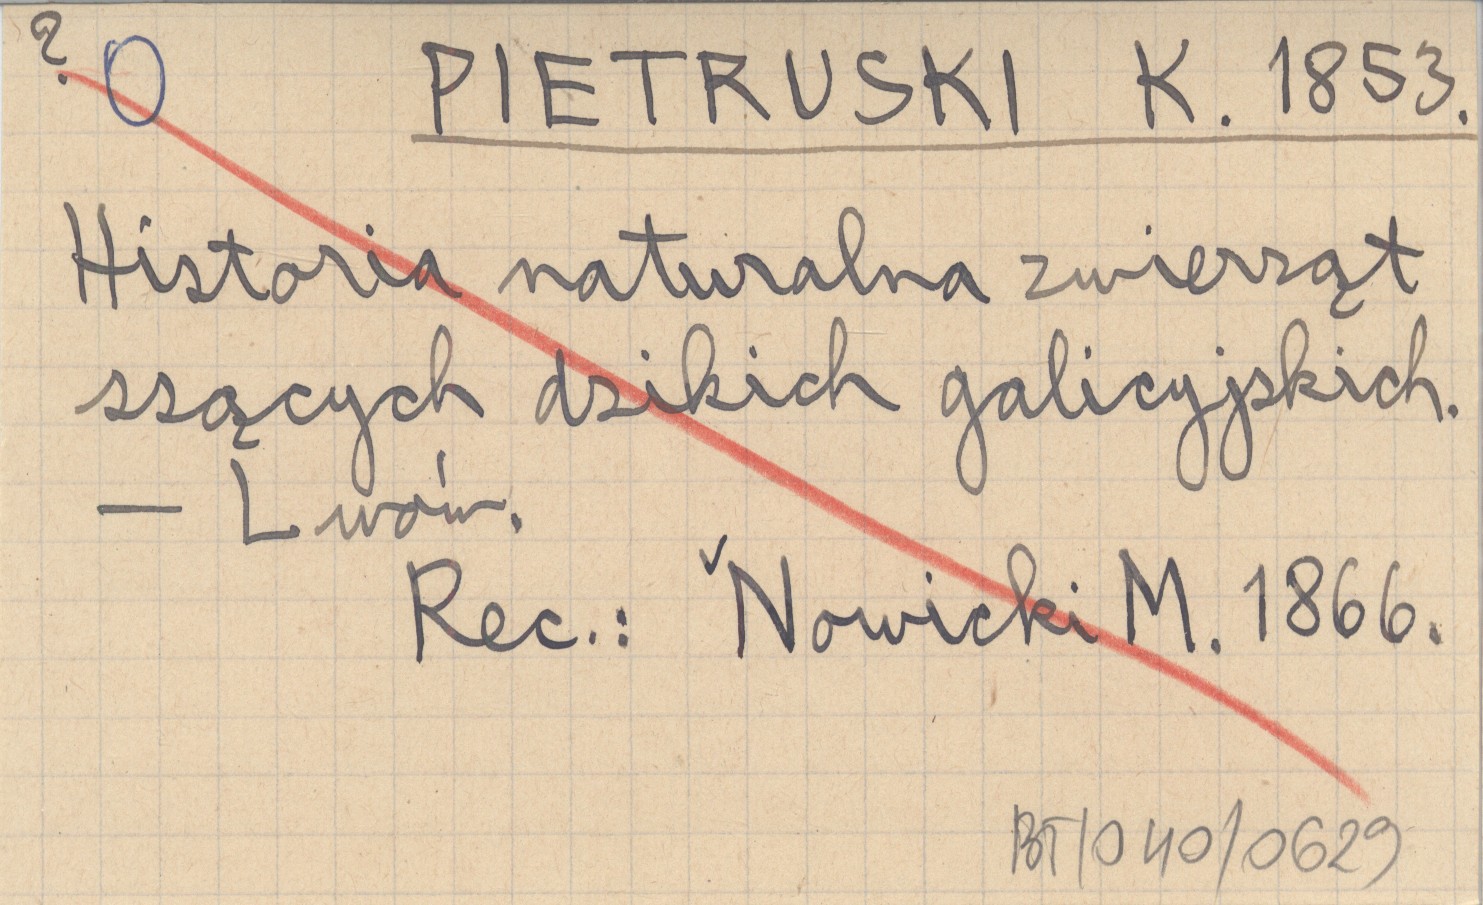 ? O PIETRUSKI K. 1853.
Historia naturalna zwierząt
ssących dzikich galicyjskich.
— Lwów.
Rec.: ˇNowicki M. 1866.
BT/040/0629